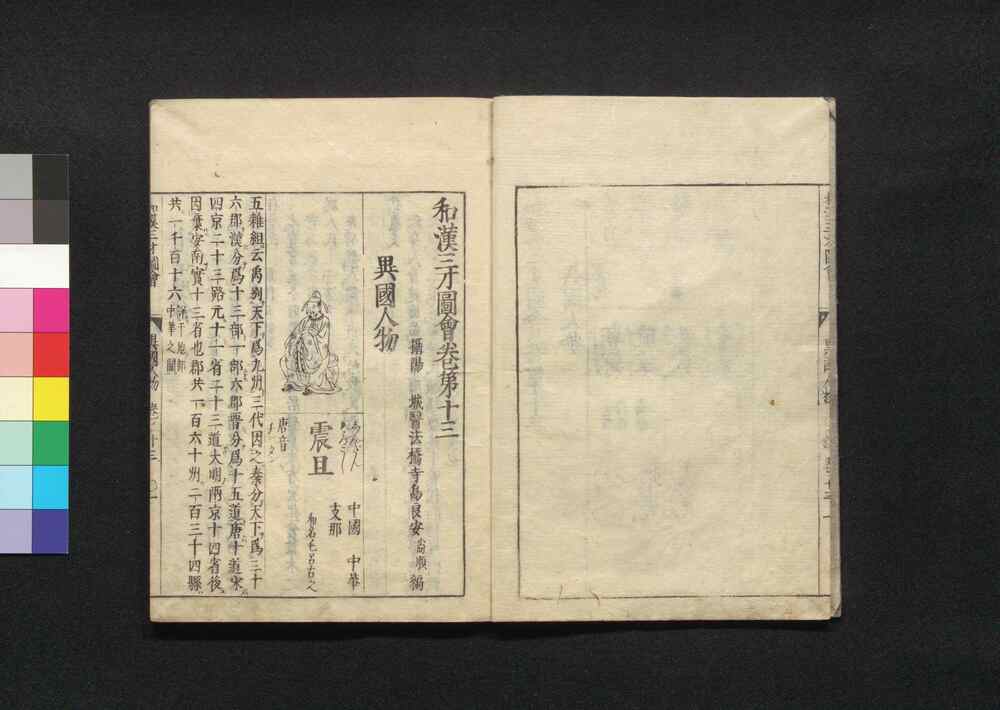 和漢三才圖會巻第十三
攝陽 城醫法橋寺島良安尚順編
異國人物
震旦
しんたん
もろこし
唐音
チン タン
中國 中華
支那
和名毛呂古之
五雜組云禹别天下爲九州三代因之秦分天下爲三十
六郡漢分爲十三部一部六郡晉分爲十五道唐十道宋
四京二十三路元十一省二十三道大明兩京十四省後
因棄安南實十三省也郡共一百六十州二百三十四縣
共一千百十六
中華之圖
和漢三才圖會 異國人物 巻之十三